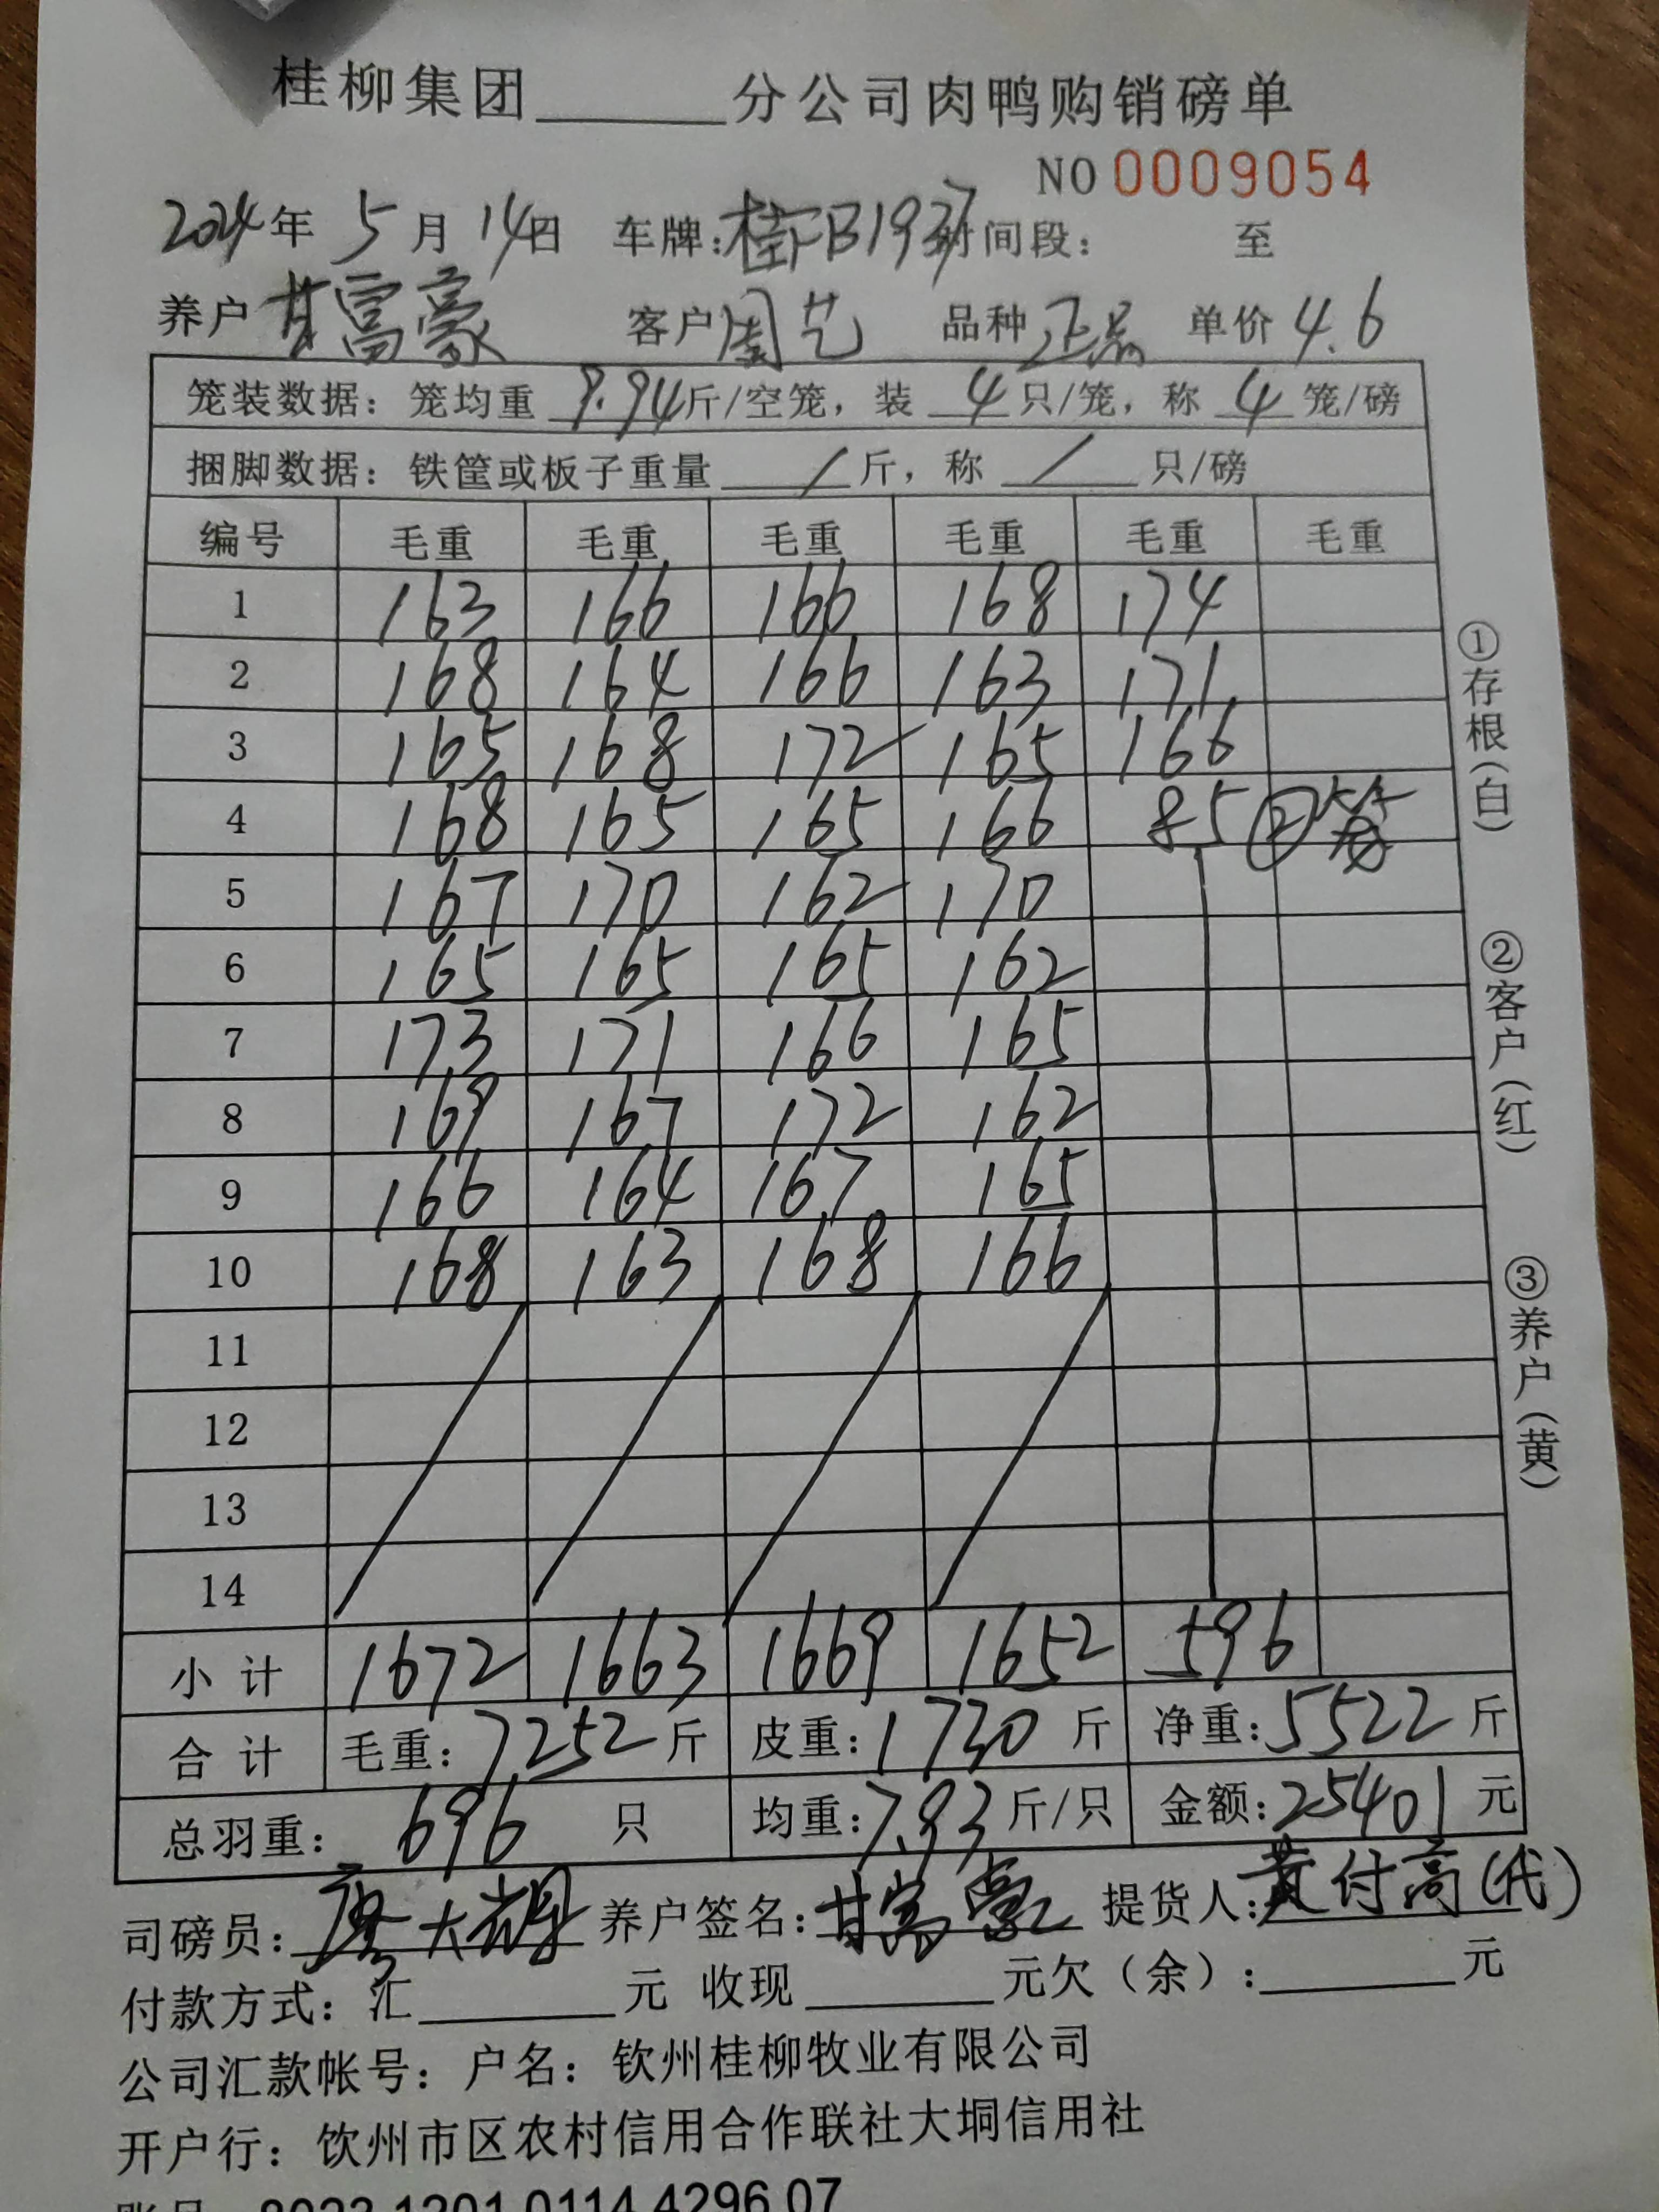 桂柳集团______分公司肉鸭购销磅单
NO 0009054
2024年 5月 14日 车牌:桂FB1937 时间段: 至
养户 甘富豪 客户 周艺 品种 正品 单价 4.6
笼装数据:笼均重 9.94 斤/空笼,装 4 只/笼,称 4 笼/磅
捆脚数据:铁筐或板子重量 / 斤,称 / 只/磅
编号 毛重 毛重 毛重 毛重 毛重 毛重
1 163 166 166 168 174
2 168 164 166 163 171
3 165 168 172 165 166
4 168 165 165 166 85 ②
5 167 170 162 170
6 165 165 165 162
7 173 171 166 165
8 169 167 172 162
9 166 164 167 165
10 168 163 168 166
11
12
13
14
小计 1672 1663 1669 1652 596
合计 毛重:7252斤 皮重:1730斤 净重:5522斤
总羽重: 696 只 均重:7.93斤/只 金额:25401元
司磅员: 养户签名:甘富豪 提货人:黄付高(代)
付款方式:汇______元 收现______元欠(余):______元
公司汇款帐号:户名:钦州桂柳牧业有限公司
开户行:钦州市区农村信用合作联社大垌信用社
账号 8033 1201 0114 4296 07
①存根(白)
②客户(红)
③养户(黄)